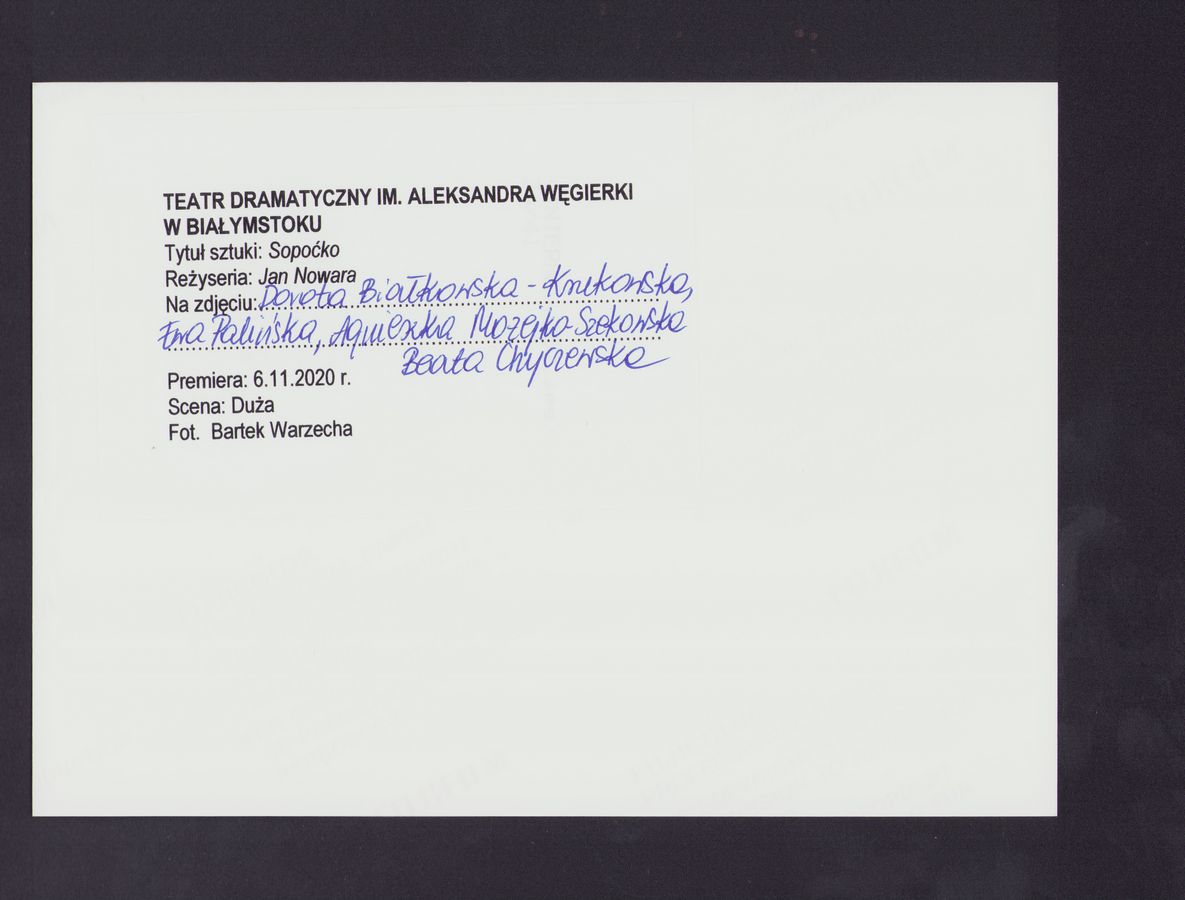 TEATR DRAMATYCZNY IM. ALEKSANDRA WĘGIERKI
W BIAŁYMSTOKU
Tytuł sztuki: Sopoćko
Reżyseria: Jan Nowara
Na zdjęciu: Dorota Białkowska-Krukowska,
Ewa Palińska, Agnieszka Możejko-Szekowska
Beata Chyczewska
Premiera: 6.11.2020 r.
Scena: Duża
Fot. Bartek Warzecha